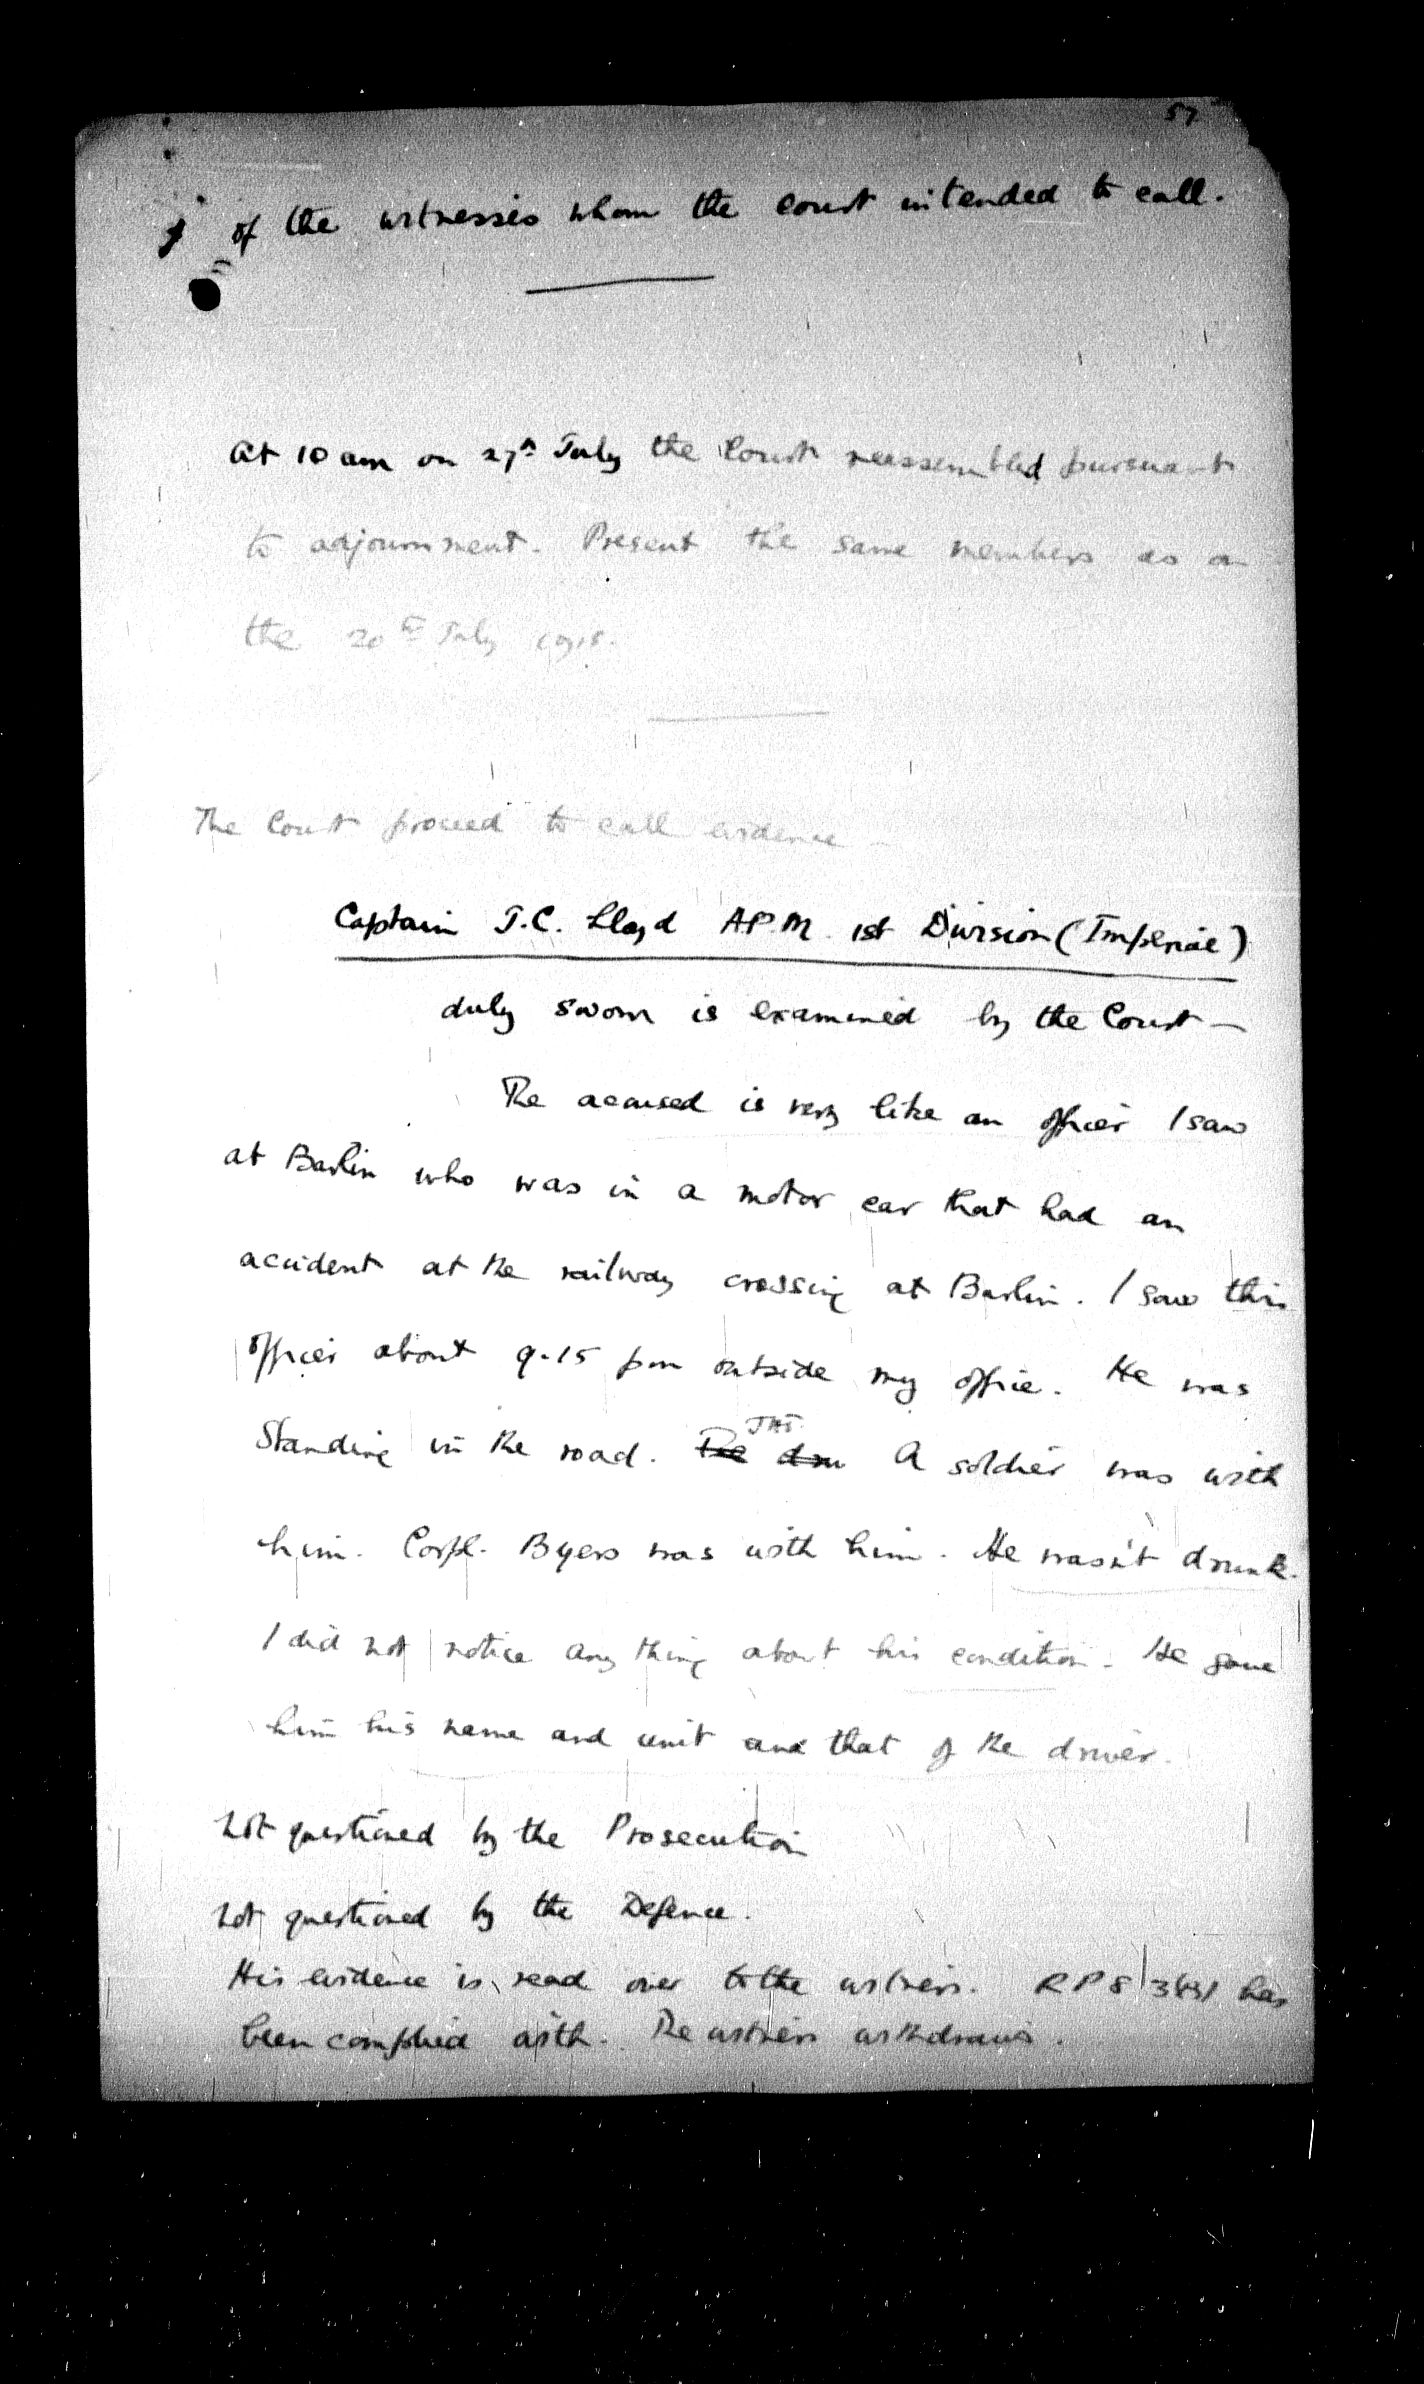 57
of the witnesses whom the court intended to call.
At 10 am on 27th July the Court reassembled pursuant
to adjournment. Present the same members as on
the 20th July 1918.
The Court proceed to call evidence -
Captain J.C. Lloyd A.P.M. 1st Division (Imperial)
duly sworn is examined by the Court -
The accused is very like an officer I saw
at Barlin who was in a motor car that had an
accident at the railway crossing at Barlin. I saw this
officer about 9.15 pm outside my office. He was
Standing in the road. The A soldier was with
him. Corpl. Byers was with him. He wasn't drunk.
I did not notice any thing about his condition. He gave
him his name and unit and that of the driver.
Not questioned by the Prosecution
Not questioned by the Defence.
His evidence is read over to the witness. RP 83 has
been complied with. The witness withdraws.